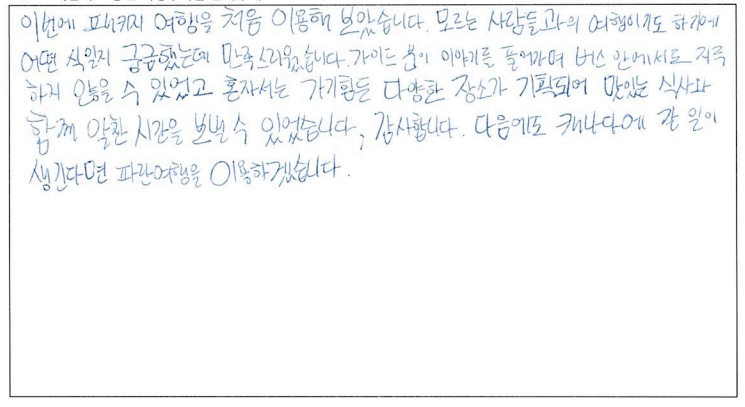 이번에 패키지 여행을 처음 이용해 보았습니다. 모르는 사람들과의 여행이기도 하기에
어떤 식일지 궁금했는데 만족스러웠습니다. 가이드 분이 이야기를 풀어가며 버스 안에서도 지루
하지 않을 수 있었고 혼자서는 가기힘든 다양한 장소가 기획되어 맛있는 식사와
함께 알찬 시간을 보낼 수 있었습니다, 감사합니다. 다음에도 캐나다에 갈 일이
생긴다면 파란여행을 이용하겠습니다.